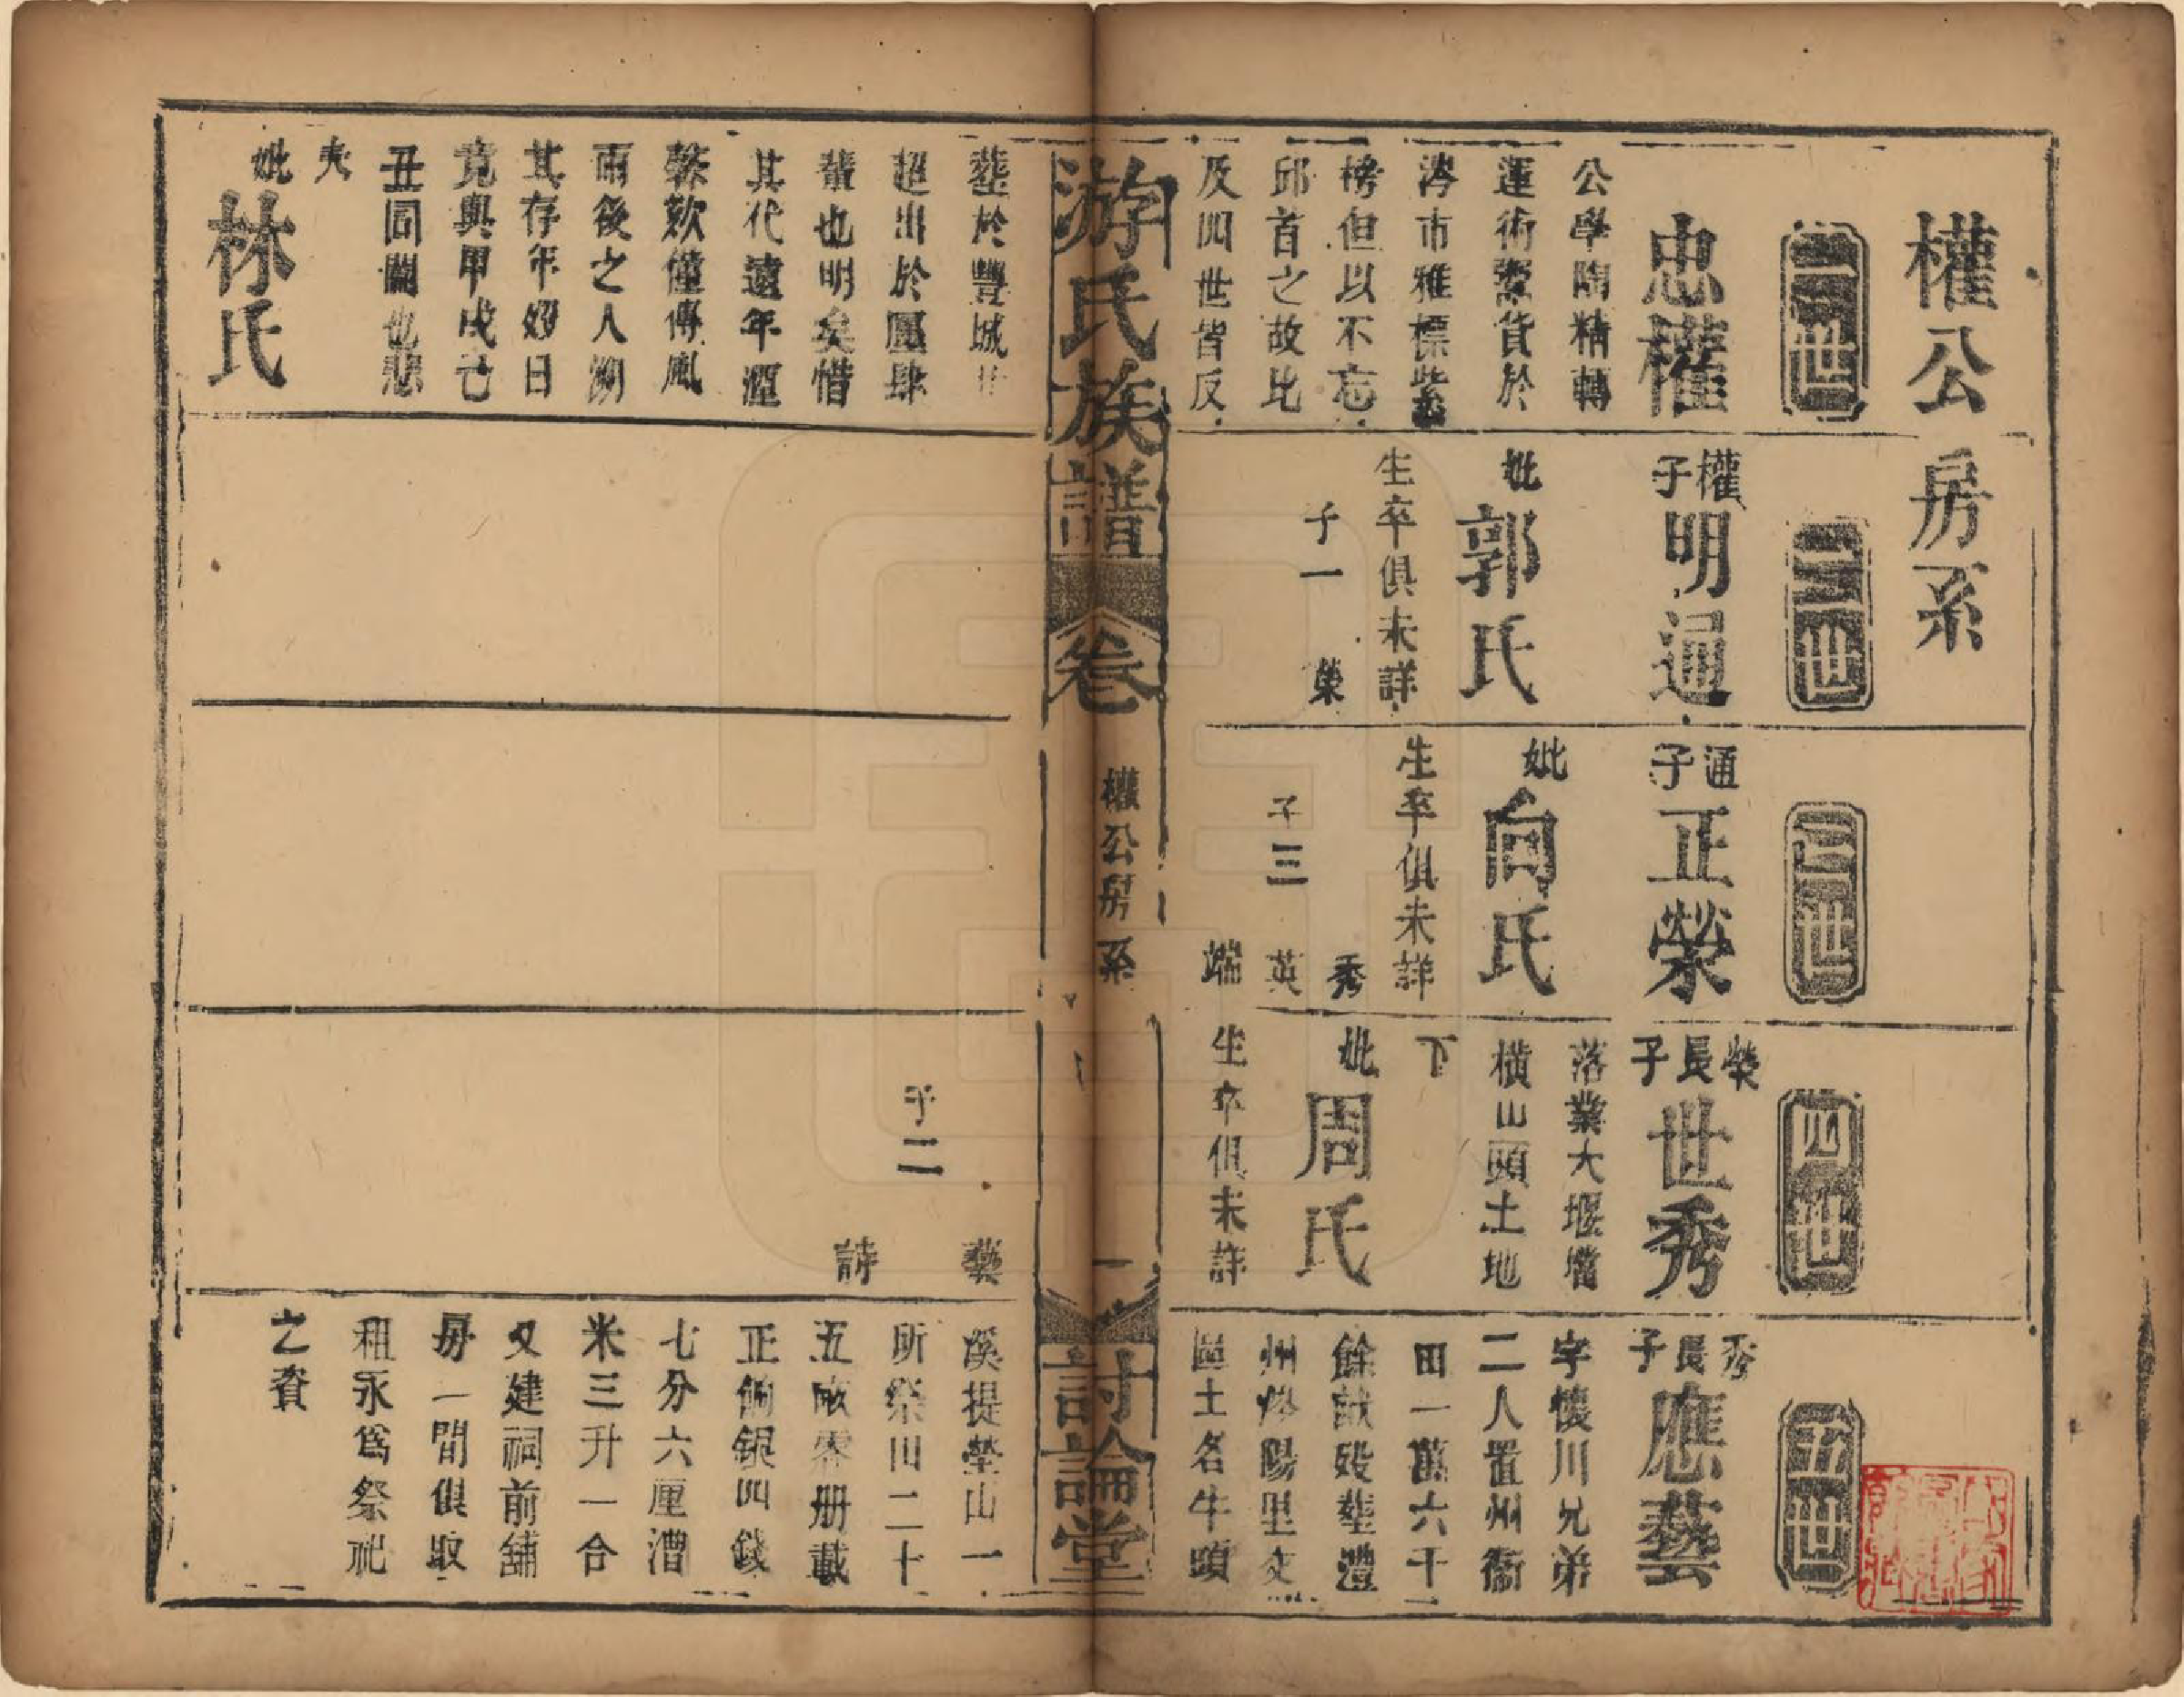 權公房系
一世
忠權
公學陶精轉
運術鬻貨於
涔市雅標紫
榜但以不忘
邱首之故比
及四世皆反
葬於豐城
超出於壓肆
輩也明矣惜
其代遠年湮
欵僅傳風
雨後之人溯
其存年歿日
竟與甲戌己
丑同闕也悲
夫
妣林氏
二世
權子明通
妣郭氏
生卒俱未詳
子一 榮
三世
通子正榮
妣向氏
生卒俱未詳
子三 秀
英
端
四世
榮長子世秀
落業大堰壋
橫山頭土地
下
妣周氏
生卒俱未詳
子二 藝
詩
五世
秀長子應藝
字懷川兄弟
二人置州衞
田一萬六千
餘畝歿葬澧
州焬陽里文
區土名牛頭
溪提塋山一
所祭田二十
五畝零册載
正餉銀四錢
七分六厘漕
米三升一合
又建祠前舖
房一間俱取
租永爲祭祀
之資
游氏族譜
卷
權公房系
一
討論堂